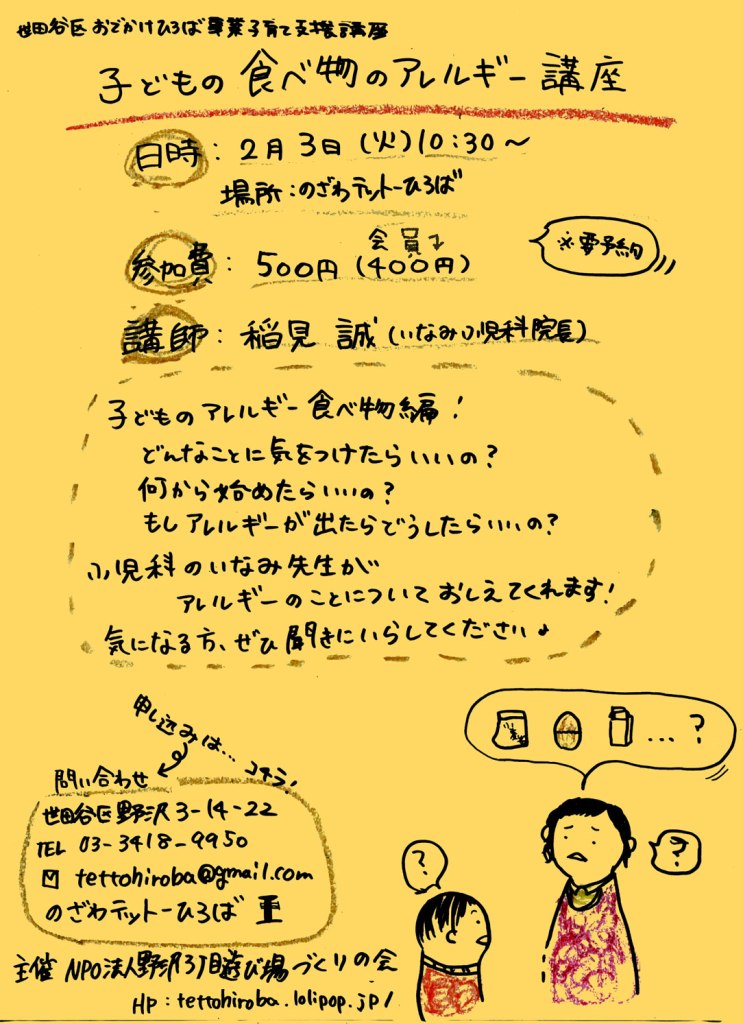 世田谷区おでかけひろば事業子育て支援講座
子どもの食べ物のアレルギー講座
日時：2月3日(火)10:30～
場所：のざわテットーひろば
会員↴
参加費：500円(400円)
※要予約
講師：稲見誠(いなみ小児科院長)
子どものアレルギー食べ物編！
どんなことに気をつけたらいいの？
何から始めたらいいの？
もしアレルギーが出たらどうしたらいいの？
小児科のいなみ先生が
アレルギーのことについておしえてくれます！
気になる方、ぜひ聞きにいらしてください♪
申し込みは…コチラ！
問い合わせ
世田谷区野沢3-14-22
TEL 03-3418-9950
✉ tettohiroba@gmail.com
のざわテットーひろば
主催 NPO法人野沢3丁目遊び場づくりの会
HP：tettohiroba.lolipop.jp/
…？
？
？